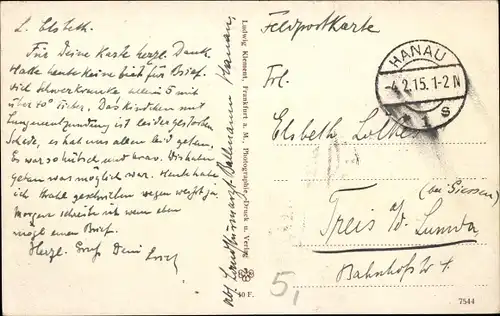 L. Elsbeth.
Für Deine Karte herzl. Dank.
Hatte heute keine Zeit für Brief.
Viel Schwerkranke allein 5 mit
über 40° Fieber. Das Kindchen mit
Lungenentzündung ist leider gestorben
Schade, es hat uns allen leid getan,
Es war so hübsch und brav. Wir haben
getan was möglich war. Heute habe
ich geschrieben wegen
Morgen schreibe ich wenn eben
mögl. einen Brief.
Herzl. Gruß Dein
Abs. Landsturmarzt Hanau
Ludwig Klement, Frankfurt a. M., Photographie-Druck u. Verlag
40 F.
Feldpostkarte
HANAU
-4.2.15.1-2N
1 s
Frl.
Elsbeth
(bei Giessen)
Treis a/d. Lumda
Bahnhofstr 4.
5,
7544